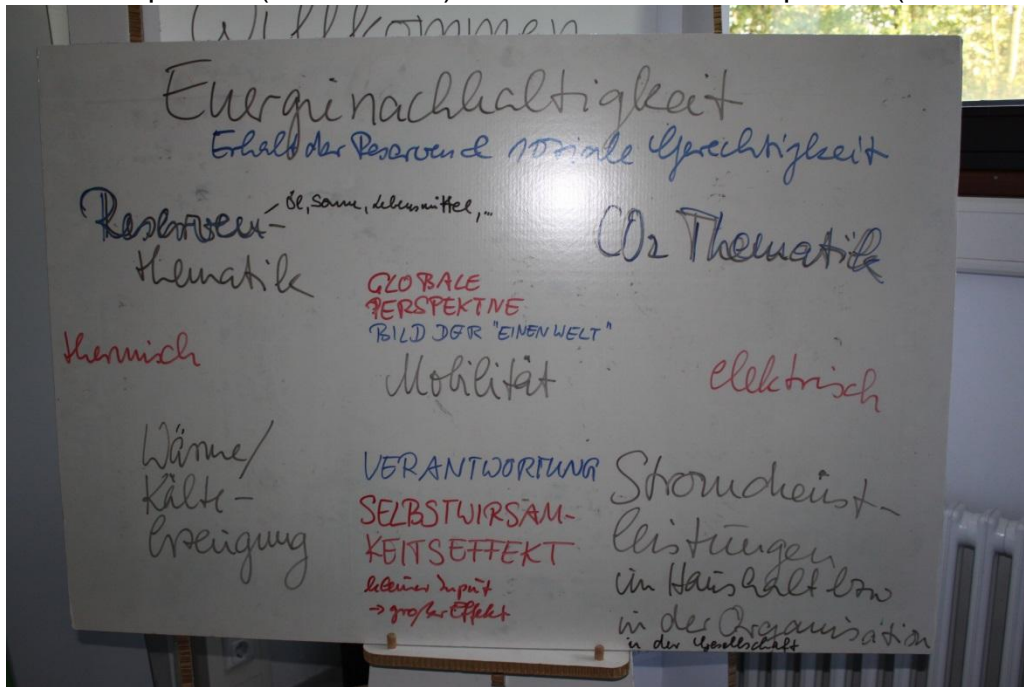 Willkommen
Energienachhaltigkeit
Erhalt der Reserven & soziale Gerechtigkeit
Reserven-
Öl, Sonne, Lebensmittel, ...
thematik
CO2 Thematik
GLOBALE
PERSPEKTIVE
BILD DER "EINEN WELT"
thermisch
Mobilität
elektrisch
Wärme/
Kälte-
erzeugung
VERANTWORTUNG
SELBSTWIRSAM-
KEITSEFFEKT
kleiner Input
→ großer Effekt
Stromdienst-
leistungen
im Haushalt bzw
in der Organisation
in der Gesellschaft